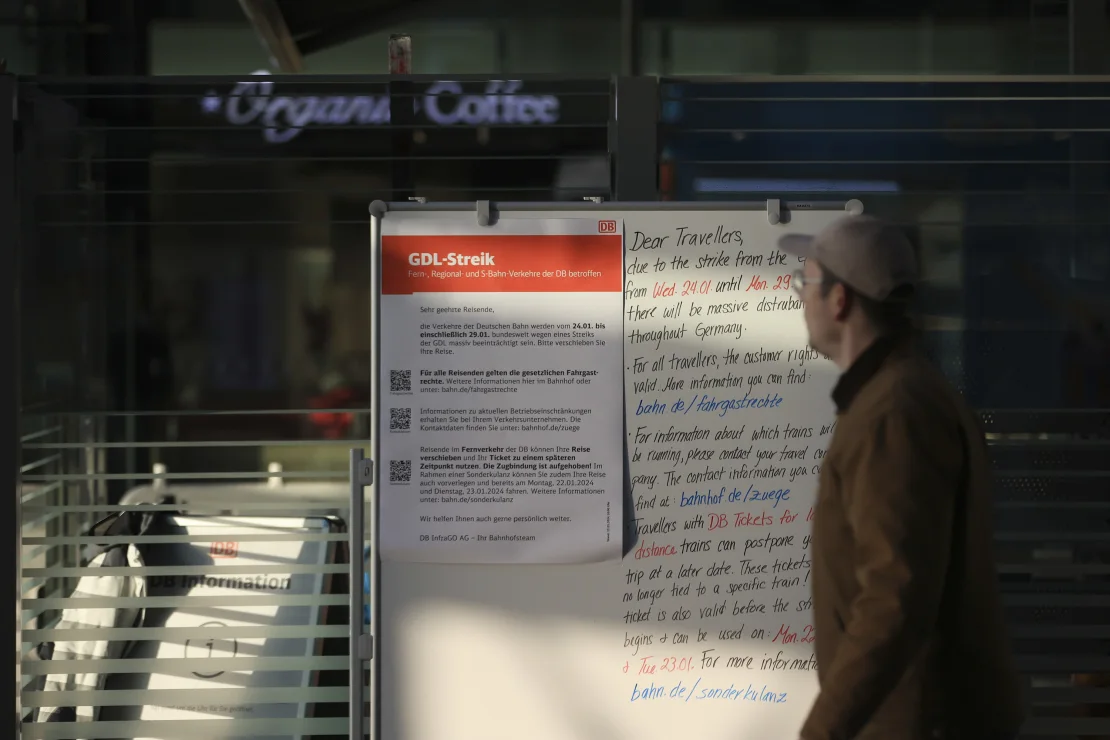 Organic Coffee
DB
GDL-Streik
Fern-, Regional- und S-Bahn-Verkehre der DB betroffen
Sehr geehrte Reisende,
die Verkehre der Deutschen Bahn werden vom 24.01. bis
einschließlich 29.01. bundesweit wegen eines Streiks
der GDL massiv beeinträchtigt sein. Bitte verschieben Sie
Ihre Reise.
Für alle Reisenden gelten die gesetzlichen Fahrgast-
rechte. Weitere Informationen hier im Bahnhof oder
unter: bahn.de/fahrgastrechte
Informationen zu aktuellen Betriebseinschränkungen
erhalten Sie bei Ihrem Verkehrsunternehmen. Die
Kontaktdaten finden Sie unter: bahnhof.de/zuege
Reisende im Fernverkehr der DB können Ihre Reise
verschieben und Ihr Ticket zu einem späteren
Zeitpunkt nutzen. Die Zugbindung ist aufgehoben! Im
Rahmen einer Sonderkulanz können Sie zudem Ihre Reise
auch vorverlegen und bereits am Montag, 22.01.2024
und Dienstag, 23.01.2024 fahren. Weitere Informationen
unter: bahn.de/sonderkulanz
Wir helfen Ihnen auch gerne persönlich weiter.
DB InfraGO AG – Ihr Bahnhofsteam
Dear Travellers,
due to the strike from the
from Wed. 24.01. until Mon. 29
there will be massive distruban
throughout Germany.
· For all travellers, the customer rights
valid. More information you can find:
bahn.de/fahrgastrechte
· For information about which trains wi
be running, please contact your travel com
pany. The contact information you c
find at: bahnhof.de/zuege
Travellers with DB Tickets for l
distance trains can postpone y
trip at a later date. These tickets
no longer tied to a specific train!
ticket is also valid before the str
begins & can be used on: Mon. 22
& Tue 23.01. For more informati
bahn.de/sonderkulanz
DB
DB Information
i